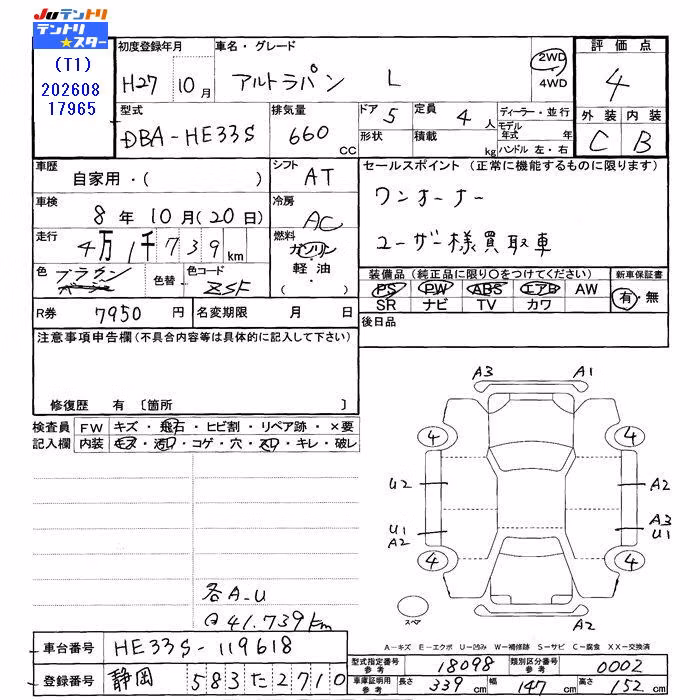 Juテントリ
テントリ
★スター
(T1)
202608
17965
初度登録年月
H27年10月
車名・グレード
アルトラパン L
2WD
4WD
評価点
4
外装 内装
C B
型式
DBA-HE33S
排気量
660 cc
ドア 5
形状
定員 4 人
積載 kg
ディーラー・並行
モデル年式 年
ハンドル 左・右
車歴
自家用・( )
シフト
AT
セールスポイント (正常に機能するものに限ります)
ワンオーナー
ユーザー様買取車
車検
8年10月(20日)
冷房
AC
走行
4万1千739km
燃料
ガソリン
軽油
( )
色 ブラウン
色替
色コード
ZSF
装備品 (純正品に限り○をつけてください)
PS PW ABS エアB AW
SR ナビ TV カワ
新車保証書
有・無
R券 7950 円
名変期限 月 日
後日品
注意事項申告欄 (不具合内容等は具体的に記入して下さい)
修復歴 有 〔箇所 〕
検査員記入欄
FW キズ・飛石・ヒビ割・リペア跡・×要
内装 キズ・汚れ・コゲ・穴・スレ・キレ・破レ
各A-U
@ 41.739km
A3 A1
4 4
U2 A2
U1 A3
A2 U1
4 4
スペア
A2
A-キズ E-エクボ U-凹み W-補修跡 S-サビ C-腐食 XX-交換済
車台番号 HE33S-119618
登録番号 静岡 583た2710
型式指定番号 参考 18098
類別区分番号 参考 0002
車庫証明用 参考 長さ 339cm 幅 147cm 高さ 152cm